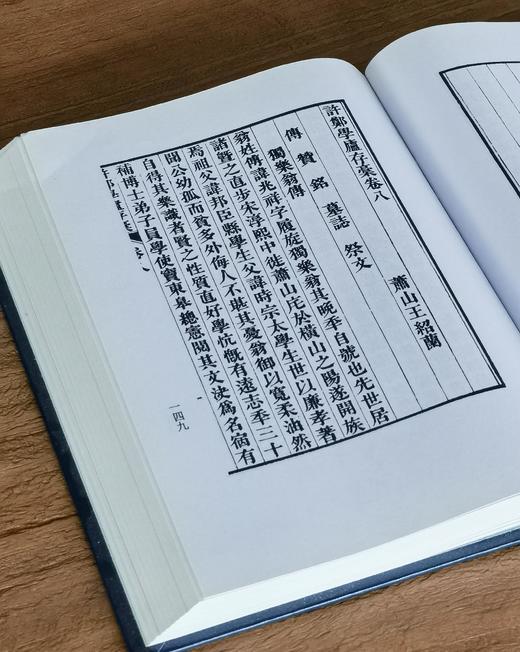 許鄭學廬存稾卷八
蕭山王紹蘭
傳 贊 銘 墓誌 祭文
獨樂翁傳
翁姓傅諱兆祥字履旋獨樂翁其晚季自號也先世居
諸曁之直步宋淳熙中徙蕭山庄於橫山之陽遂開族
焉祖父諱邦臣縣學生父諱時宗太學生世以廉孝著
聞公幼孤而貧多外侮人不堪其憂翁御以寬柔油然
自得其衆識者賢之性質直好學忼慨有遠志季三十
補博士弟子員學使竇東皋總憲閱其文決爲名宿有
一四九